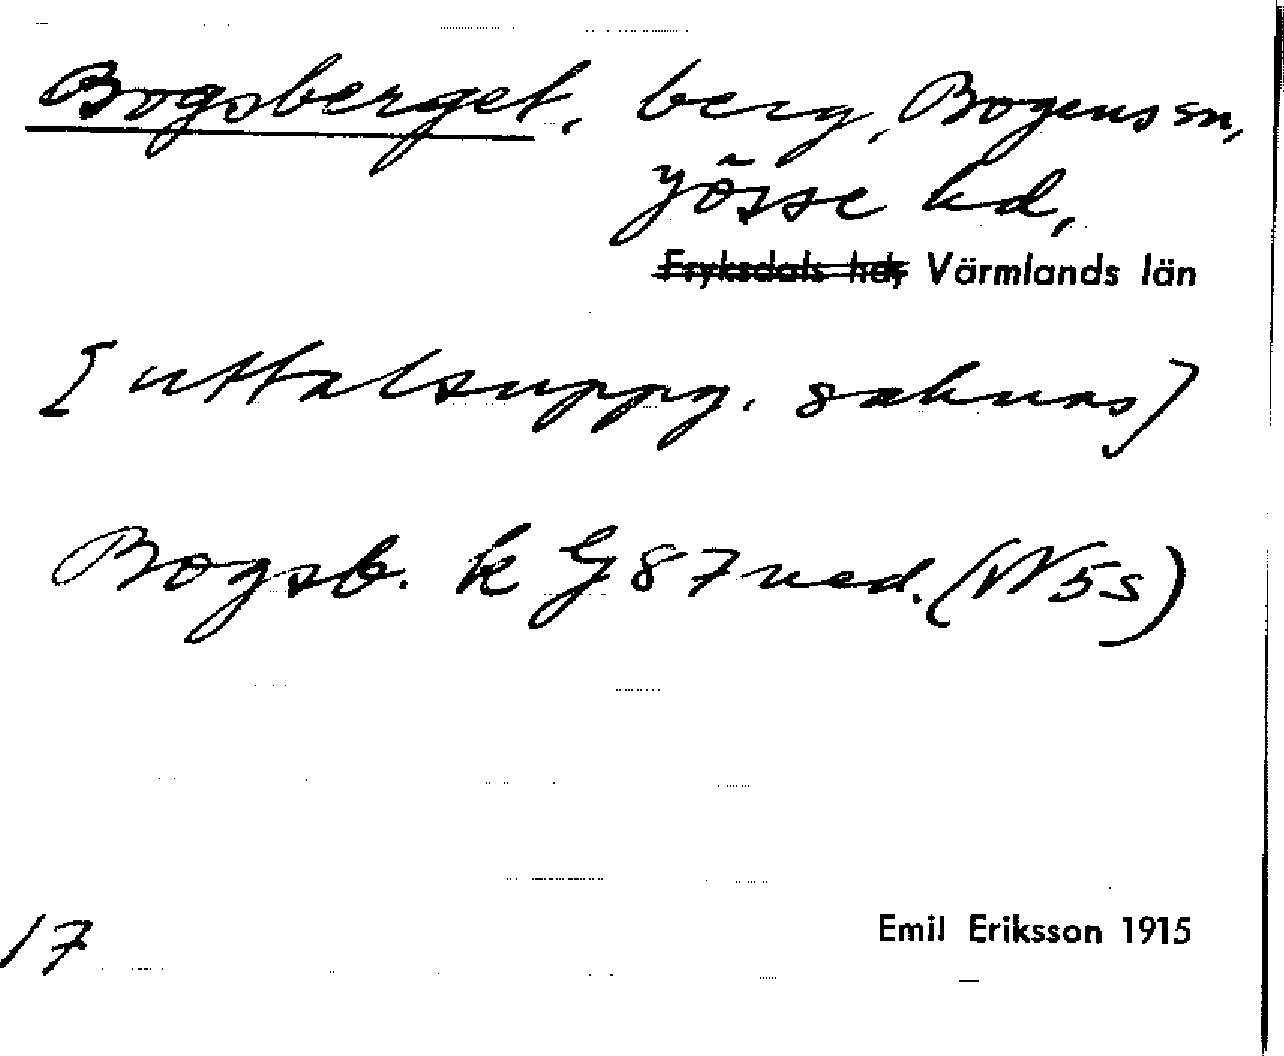 Bogsberget, berg, Bogens sn,
Jösse hd,
Fryksdals hd, Värmlands län
[uttalsuppg. saknas]
Bogsb. k G 87 ned. (W 5s)
17
Emil Eriksson 1915